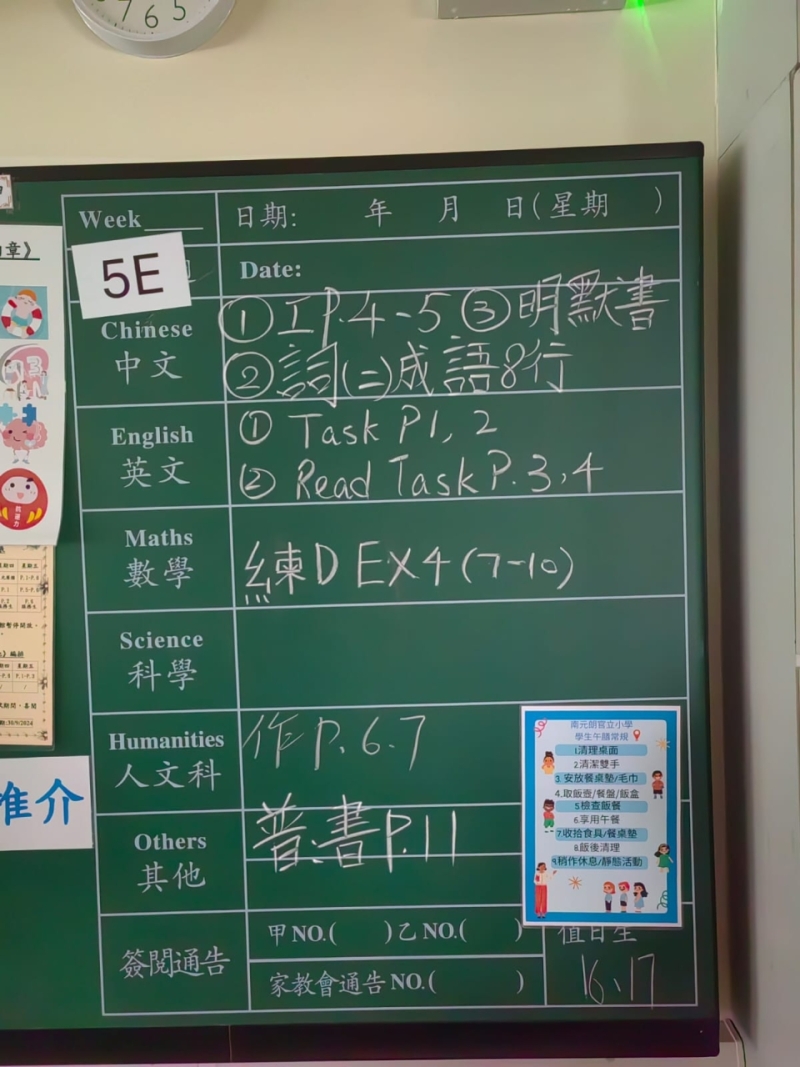 7 6 5
Week____ 日期: 年 月 日(星期 )
5E
Date:
Chinese
中文
①工P.4-5 ③明默書
②詞(二)成語8行
English
英文
① Task P1, 2
② Read Task P.3,4
Maths
數學
練D EX4(7-10)
Science
科學
Humanities
人文科
作P.6.7
Others
其他
普.書P.11
簽閱通告
甲NO.( )乙NO.( )
家教會通告NO.( )
值日生
16、17
南元朗官立小學
學生午膳常規
1清理桌面
2.清潔雙手
3.安放餐桌墊/毛巾
4.取飯壺/餐盤/飯盒
5檢查飯餐
6.享用午餐
7.收拾食具/餐桌墊
8.飯後清理
9.稍作休息/靜態活動
章》
推介